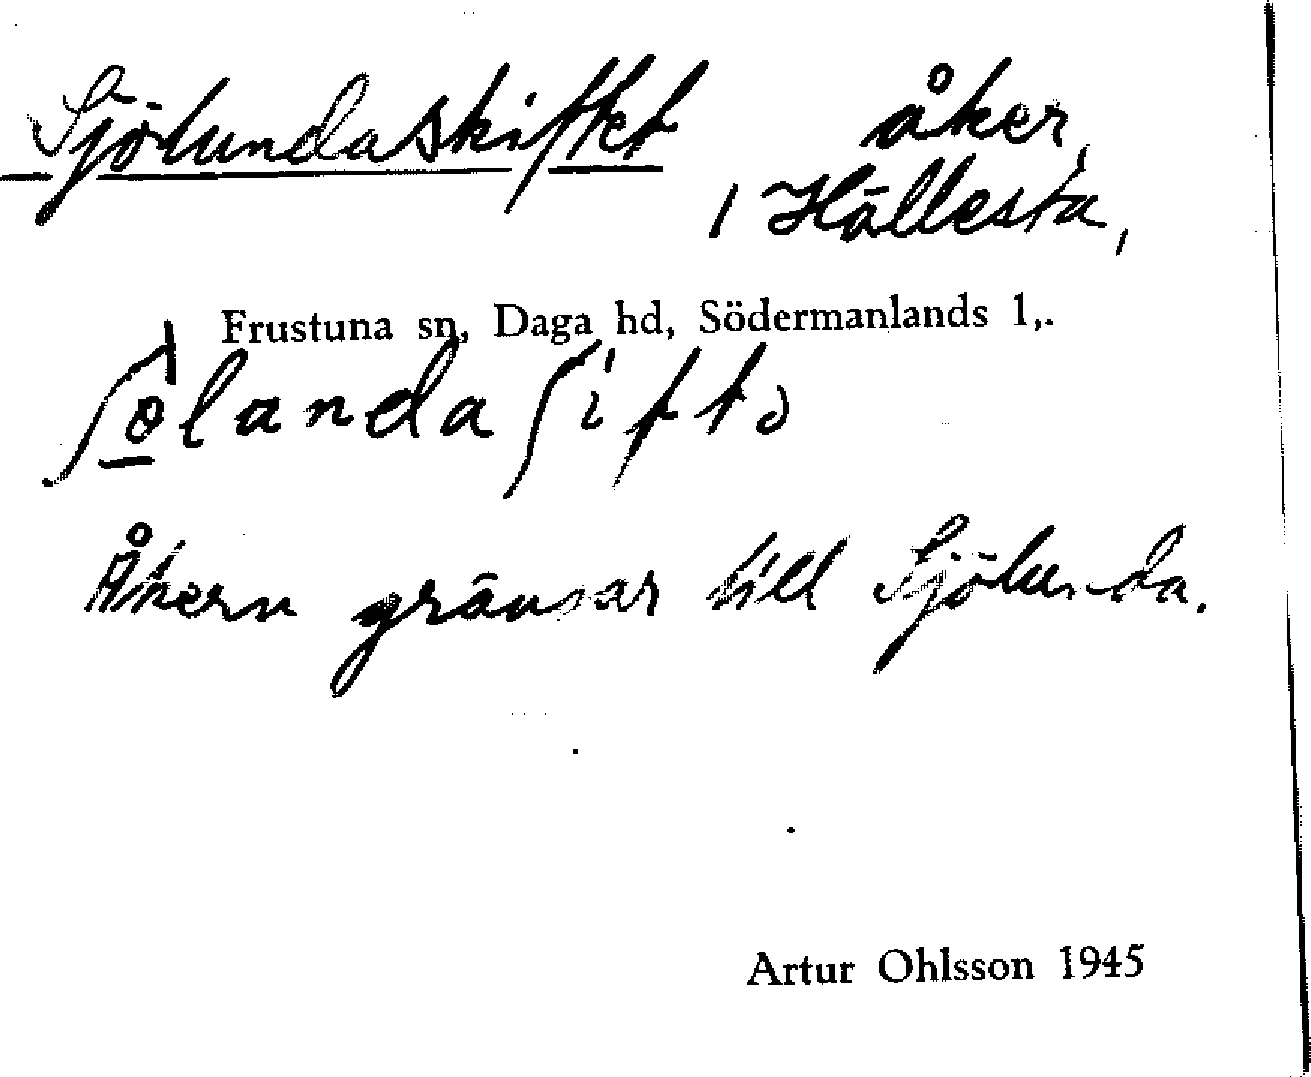 Sjölundaskiftet åker,
i Hällesta,
Frustuna sn, Daga hd, Södermanlands l,.
Åkern gränsar till Sjölunda.
Artur Ohlsson 1945